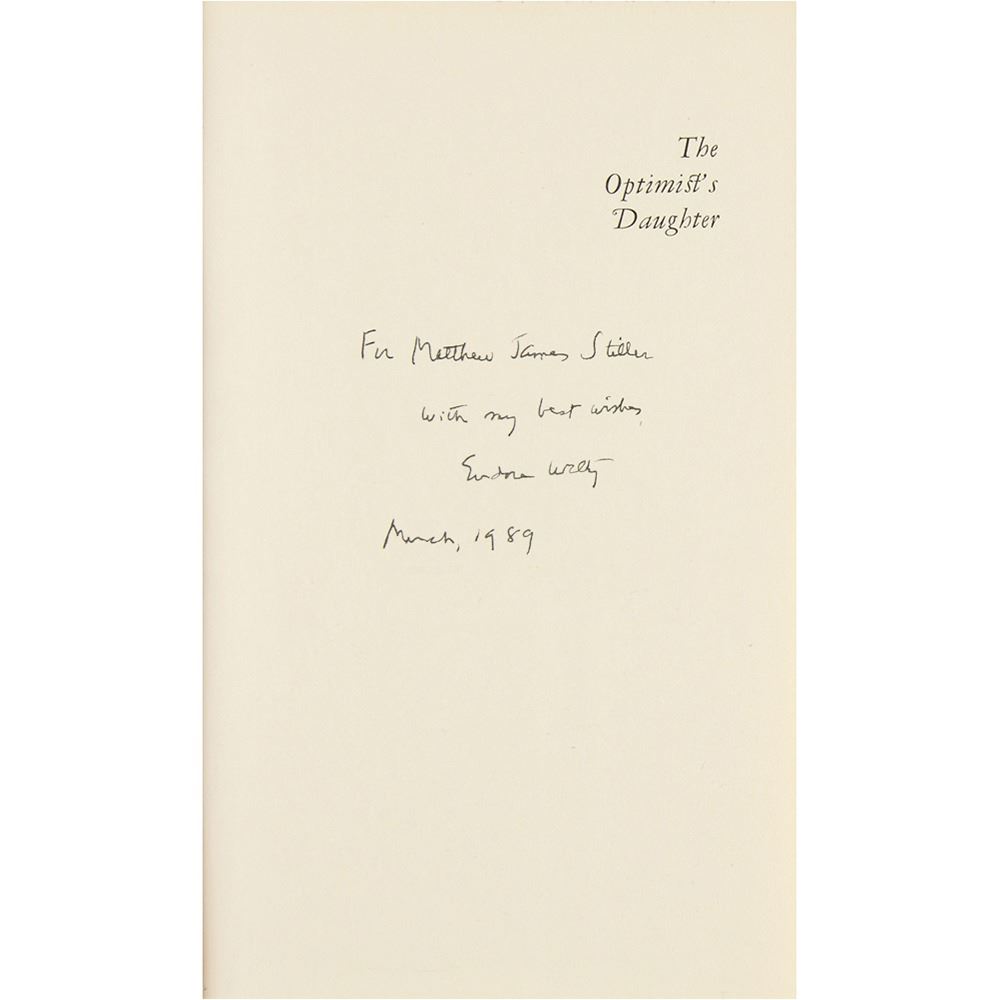 The
Optimist's
Daughter
For Matthew James Stiller
with my best wishes,
Eudora Welty
March, 1989